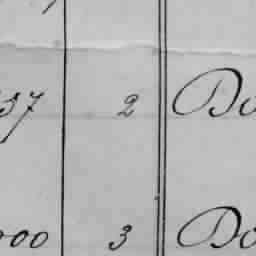 37 2 Do
000 3 Do